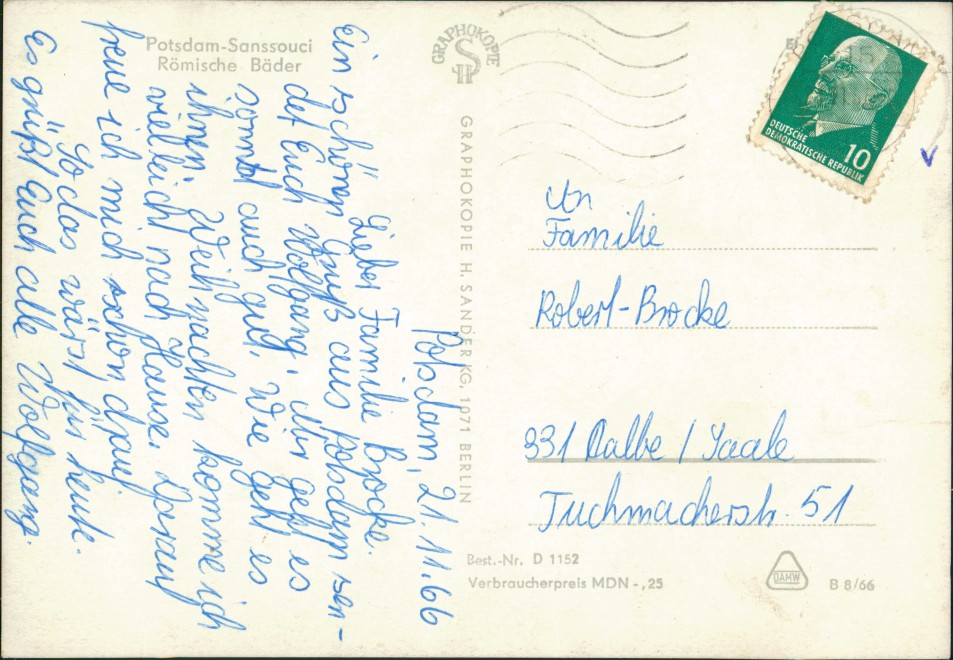 Potsdam-Sanssouci
Römische Bäder
GRAPHOKOPIE
SH
GRAPHOKOPIE H. SANDER KG, 1071 BERLIN
Potsdam, 21.11.66
Liebe Familie Brocke.
Ein schönen Gruß aus Potsdam sen-
det Euch Wolfgang. Mir geht es
sonst auch gut. Wie geht es
ihnen. Weihnachten komme ich
vielleich nach Hause. Darauf
freue ich mich schon drauf
So das wärs für heute.
Es grüßt Euch alle Wolfgang.
DEUTSCHE
DEMOKRATISCHE REPUBLIK
10
An
Familie
Robert-Brocke
331 Calbe / Saale
Tuchmacherstr. 51
Best.-Nr. D 1152
Verbraucherpreis MDN -,25
DAMW
B 8/66